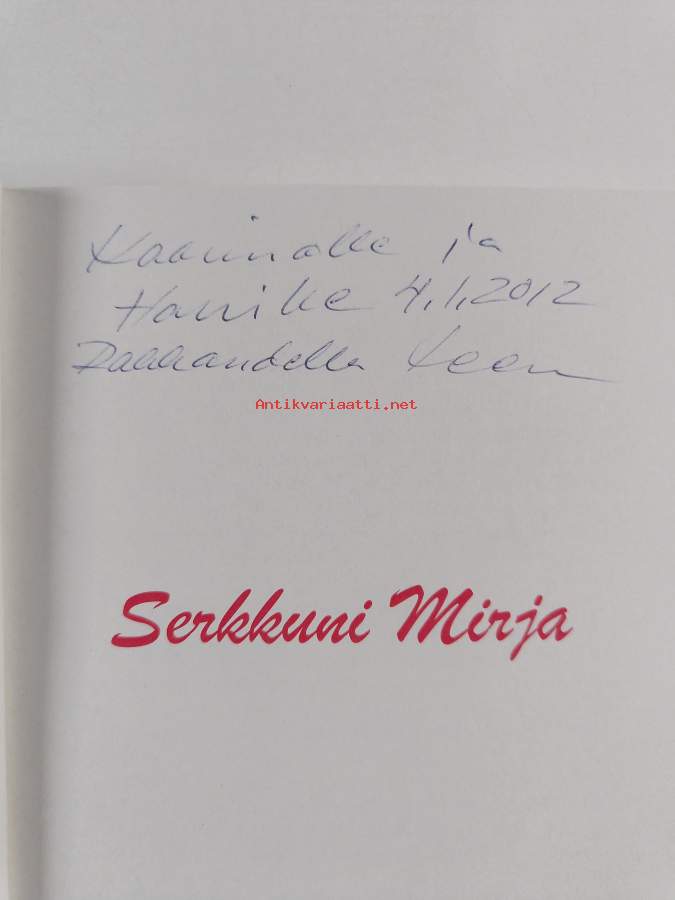 Kaarinalle ja
4.1.2012
Rakkaudella
Antikvariaatti.net
Serkkuni Mirja